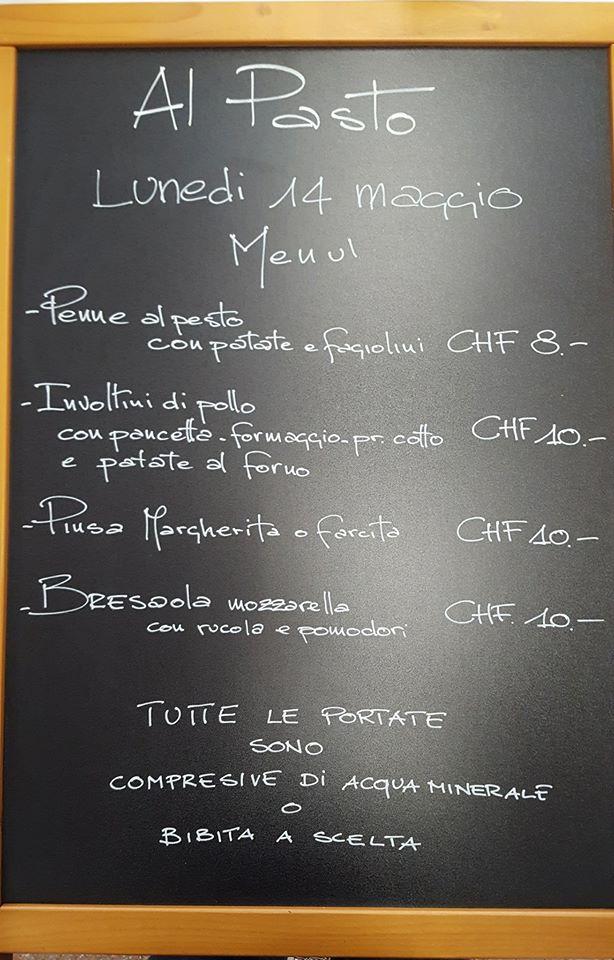 Al Pasto
Lunedi 14 maggio
Menu
-Penne al pesto
con patate e fagiolini CHF 8.-
-Involtini di pollo
con pancetta-formaggio-pr. cotto CHF 10.-
e patate al forno
-Piusa Margherita o farcita CHF 10.-
-BRESaola mozzarella
con rucola e pomodori CHF. 10.-
TUTTE LE PORTATE
SONO
COMPRESIVE Di ACQUA MINERALE
O
BIBITA A SCELTA